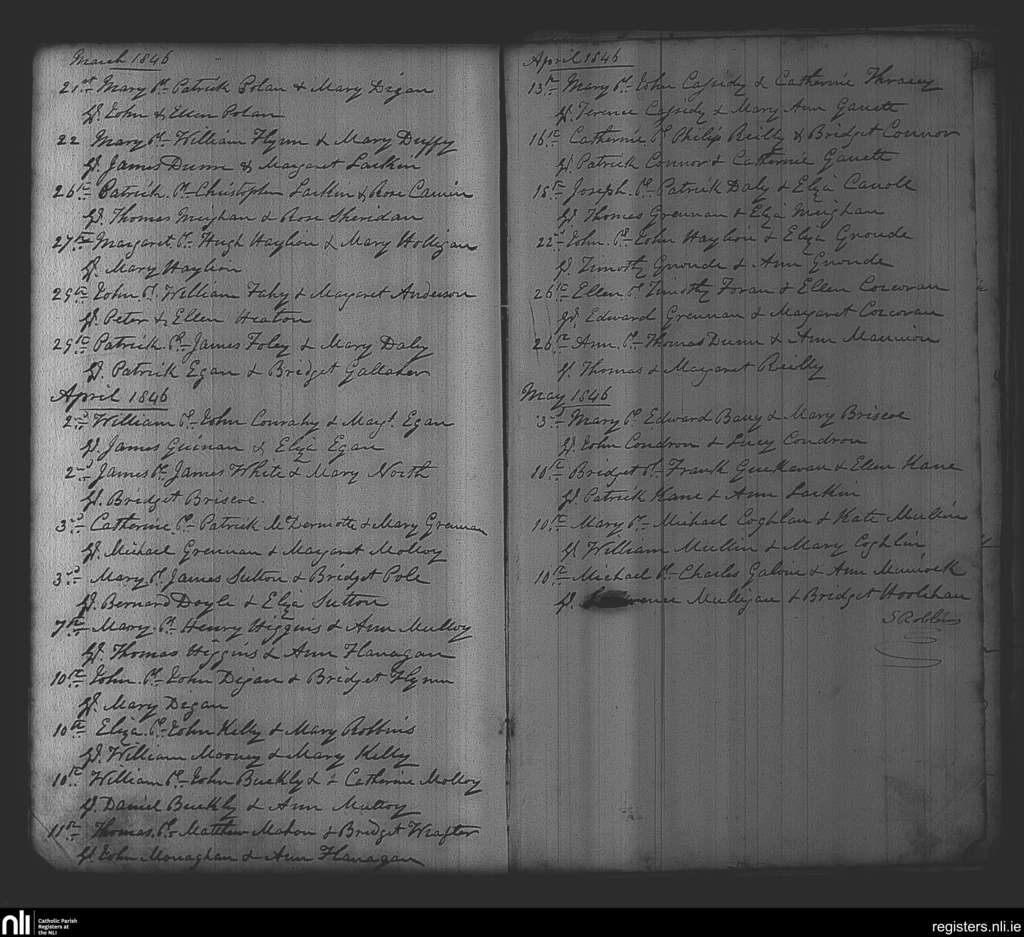 March 1846
21st Mary Pts Patrick Dolan & Mary Digan
Sp. John & Ellen Dolan
22 Mary Pts William Flynn & Mary Duffy
Sp. James Dunne & Margaret Larkin
26th Patrick Pts Christopher Larkin & Rose
Sp. Thomas Meighan & Rose Sheridan
27th Margaret Pts Hugh Haylion & Mary Holligan
Sp. Mary Haylion
29th John Pts William Fahy & Margaret Anderson
Sp. Peter & Ellen Heaton
29th Patrick Pts James Foley & Mary Daly
Sp. Patrick Egan & Bridget Gallaher
April 1846
2nd William Pts John Conrahy & Magt. Egan
Sp. James Guinan & Eliza Egan
2nd James Pts James White & Mary North
Sp. Bridget Briscoe.
3rd Catherine Pts Patrick McDermotte & Mary Grennan
Sp. Michael Grennan & Margaret Molloy
3rd Mary Pts James Sutton & Bridget Pole
Sp. Bernard Doyle & Eliza Sutton
7th Mary Pts Henry Higgins & Ann Mulloy
Sp. Thomas Higgins & Ann Flanagan
10th John Pts John Digan & Bridget Flynn
Sp. Mary Digan
10th Eliza Pts John Kelly & Mary Robbins
Sp. William Mooney & Mary Kelly
10th William Pts John Buckly & Catherine Molloy
Sp. Daniel Buckly & Ann Mulloy
11th Thomas Pts Matthew Mahon & Bridget Wrafter
Sp. John Monaghan & Ann Flanagan
April 1846
13th Mary Pts John Cassidy & Catherine Thracey
Sp. Terence Cassidy & Mary Ann Garrett
16th Catherine Pts Philip Reilly & Bridget Connor
Sp. Patrick Connor & Catherine Garrett
18th Joseph Pts Patrick Daly & Eliza Carroll
Sp. Thomas Grennan & Eliza Meighan
22nd John Pts John Haylion & Eliza Grounde
Sp. Timothy Grounde & Ann Grounde
26th Ellen Pts Timothy Foran & Ellen Corcoran
Sp. Edward Grennan & Margaret Corcoran
26th Ann Pts Thomas Dunn & Ann Mannion
Sp. Thomas & Margaret Reilly
May 1846
3rd Mary Pts Edward Barry & Mary Briscoe
Sp. John Condron & Lucy Condron
10th Bridget Pts Frank & Ellen Kane
Sp. Patrick Kane & Ann Larkin
10th Mary Pts Michael Coghlan & Kate Mullin
Sp. William Mullin & Mary Coghlin
10th Michael Pts Charles Galvin & Ann
Sp. Mulligan & Bridget Hoolahan
S Robbins
nli
Catholic Parish
Registers at
the NLI
registers.nli.ie